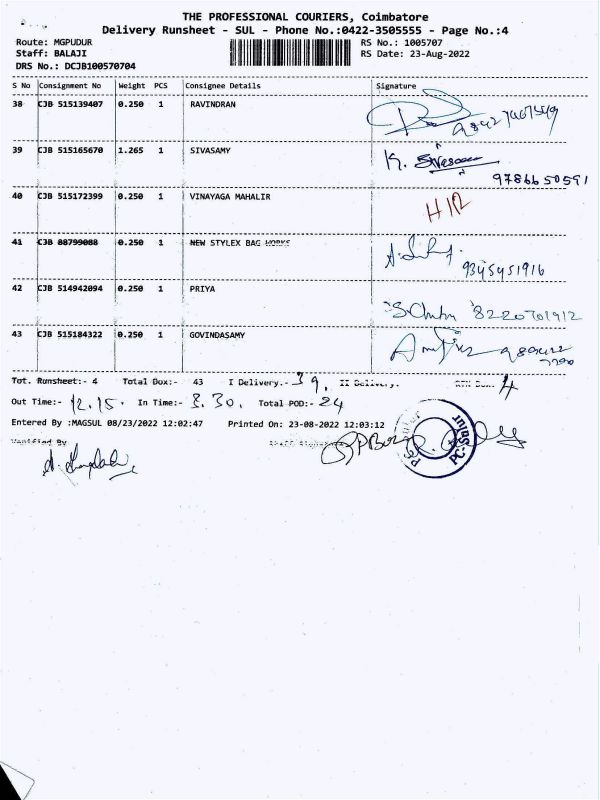 THE PROFESSIONAL COURIERS, Coimbatore
Delivery Runsheet - SUL - Phone No.:0422-3505555 - Page No.:4
Route: MGPUDUR RS No.: 1005707
Staff: BALAJI RS Date: 23-Aug-2022
DRS No.: DCJB100570704
S No Consignment No Weight PCS Consignee Details Signature
38 CJB 515139407 0.250 1 RAVINDRAN
39 CJB 515165670 1.265 1 SIVASAMY K.
9786650591
40 CJB 515172399 0.250 1 VINAYAGA MAHALIR
41 CJB 88799088 0.250 1 NEW STYLEX BAG WORKS
9345451916
42 CJB 514942094 0.250 1 PRIYA
8220701912
43 CJB 515184322 0.250 1 GOVINDASAMY
Tot. Runsheet:- 4 Total Dox:- 43 I Delivery.- 39, II Delivery. RTN Dox.- 4
Out Time:- 12.15. In Time:- 3.30. Total POD:- 24
Entered By :MAGSUL 08/23/2022 12:02:47 Printed On: 23-08-2022 12:03:12
Verified By Staff Signature
PC-Sulur